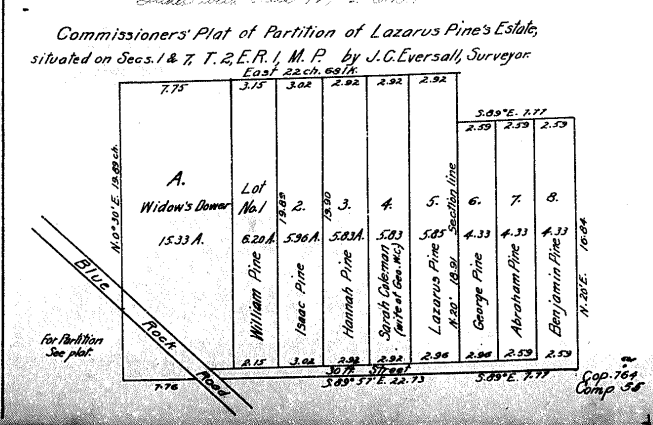 Commissioners' Plat of Partition of Lazarus Pine's Estate,
situated on Secs. 1 & 7, T. 2, E.R. 1, M.P. by J.C. Eversall, Surveyor.
East 22 ch. 68 lk.
7.75 3.15 3.02 2.92 2.92 2.92
S.89°E. 7.77
2.59 2.59 2.59
N.0°30'E. 19.89 ch.
A.
Widow's Dower
15.33 A.
Lot
No. 1
6.20 A.
William Pine
19.89
2.
5.96 A.
Isaac Pine
19.90
3.
5.83 A.
Hannah Pine
4.
5.83
Sarah Coleman
(wife of Geo. W.C.)
5.
5.85
Lazarus Pine
Section line
N.20' 18.91
6.
4.33
George Pine
7.
4.33
Abraham Pine
8.
4.33
Benjamin Pine
N.20'E. 16.84
Blue Rock Road
For Partition
See plat.
2.15 3.02 2.92 2.92 2.96 2.96 2.59 2.59
30 ft. Street
7.76 S.89°57'E. 22.73 S.89°E. 7.77
Cop. 764
Comp 55